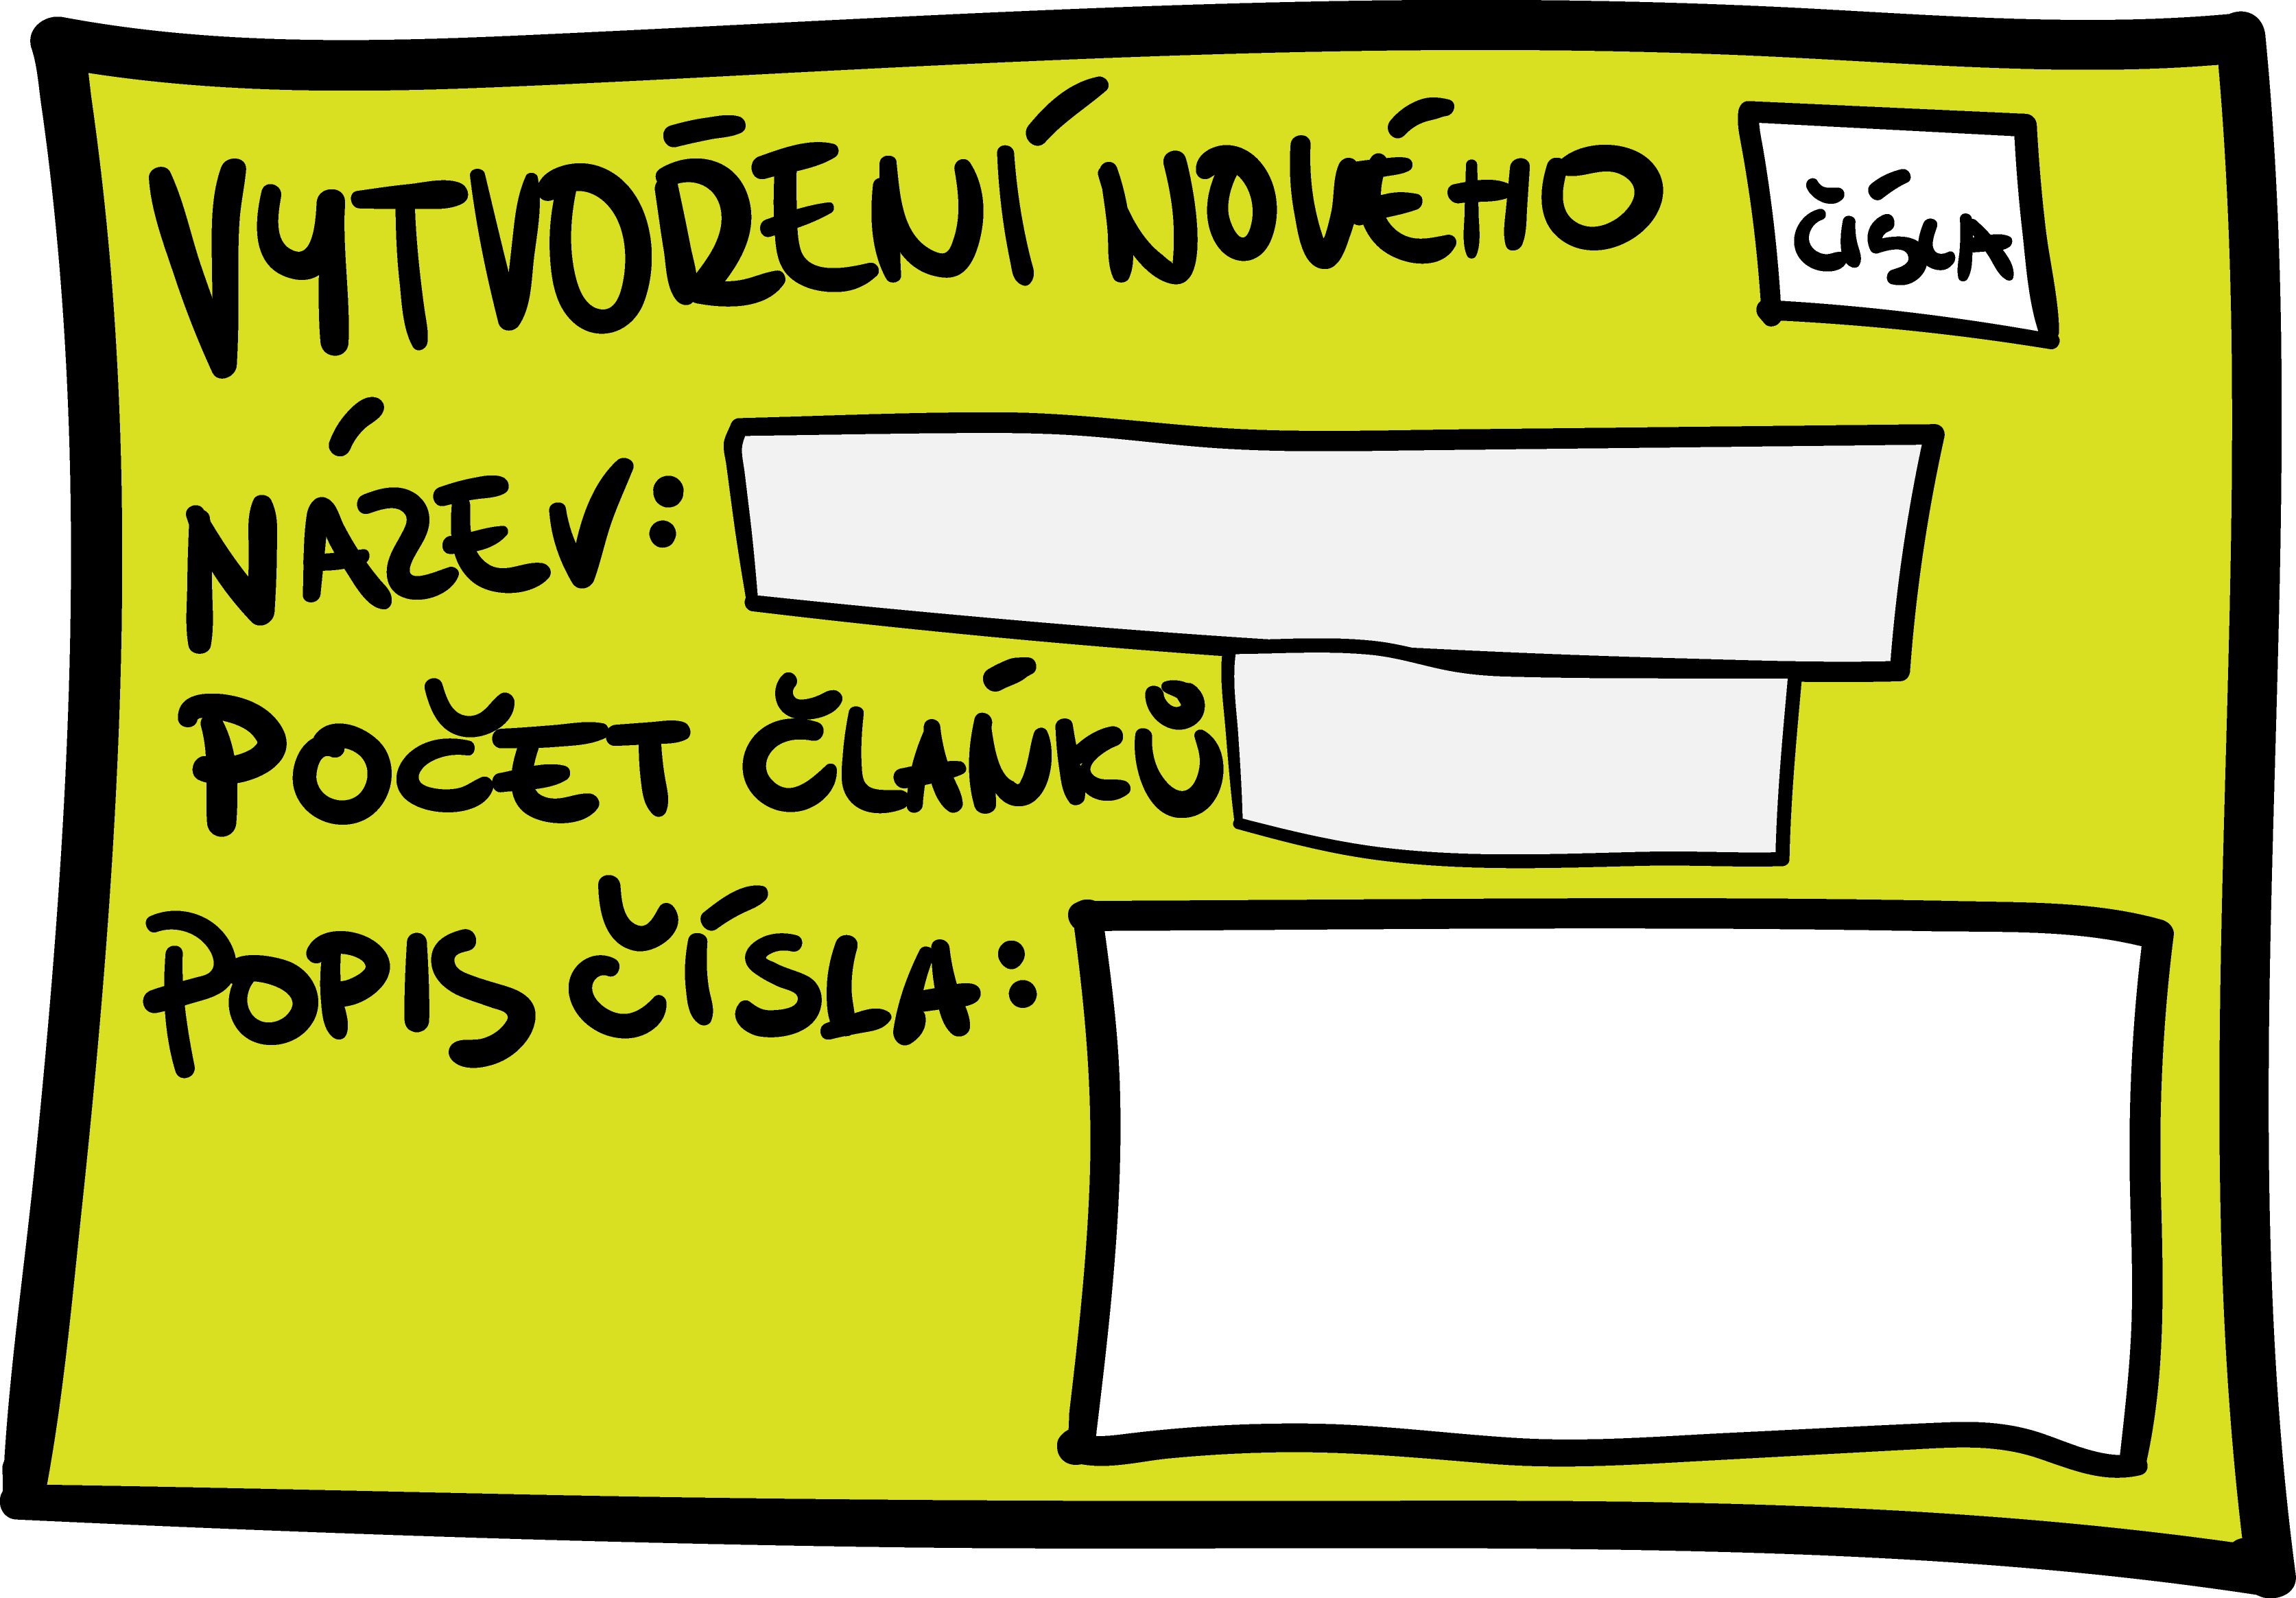 VYTVOŘENÍ NOVÉHO ČÍSLA
NÁZEV:
POČET ČLÁNKŮ
POPIS ČÍSLA: